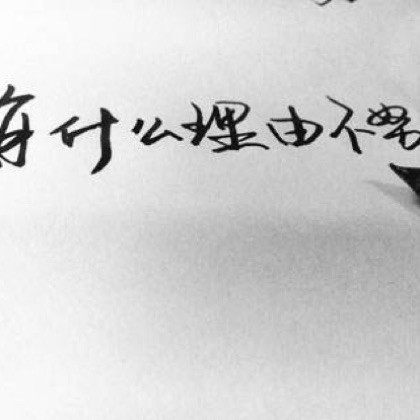 有什么理由不